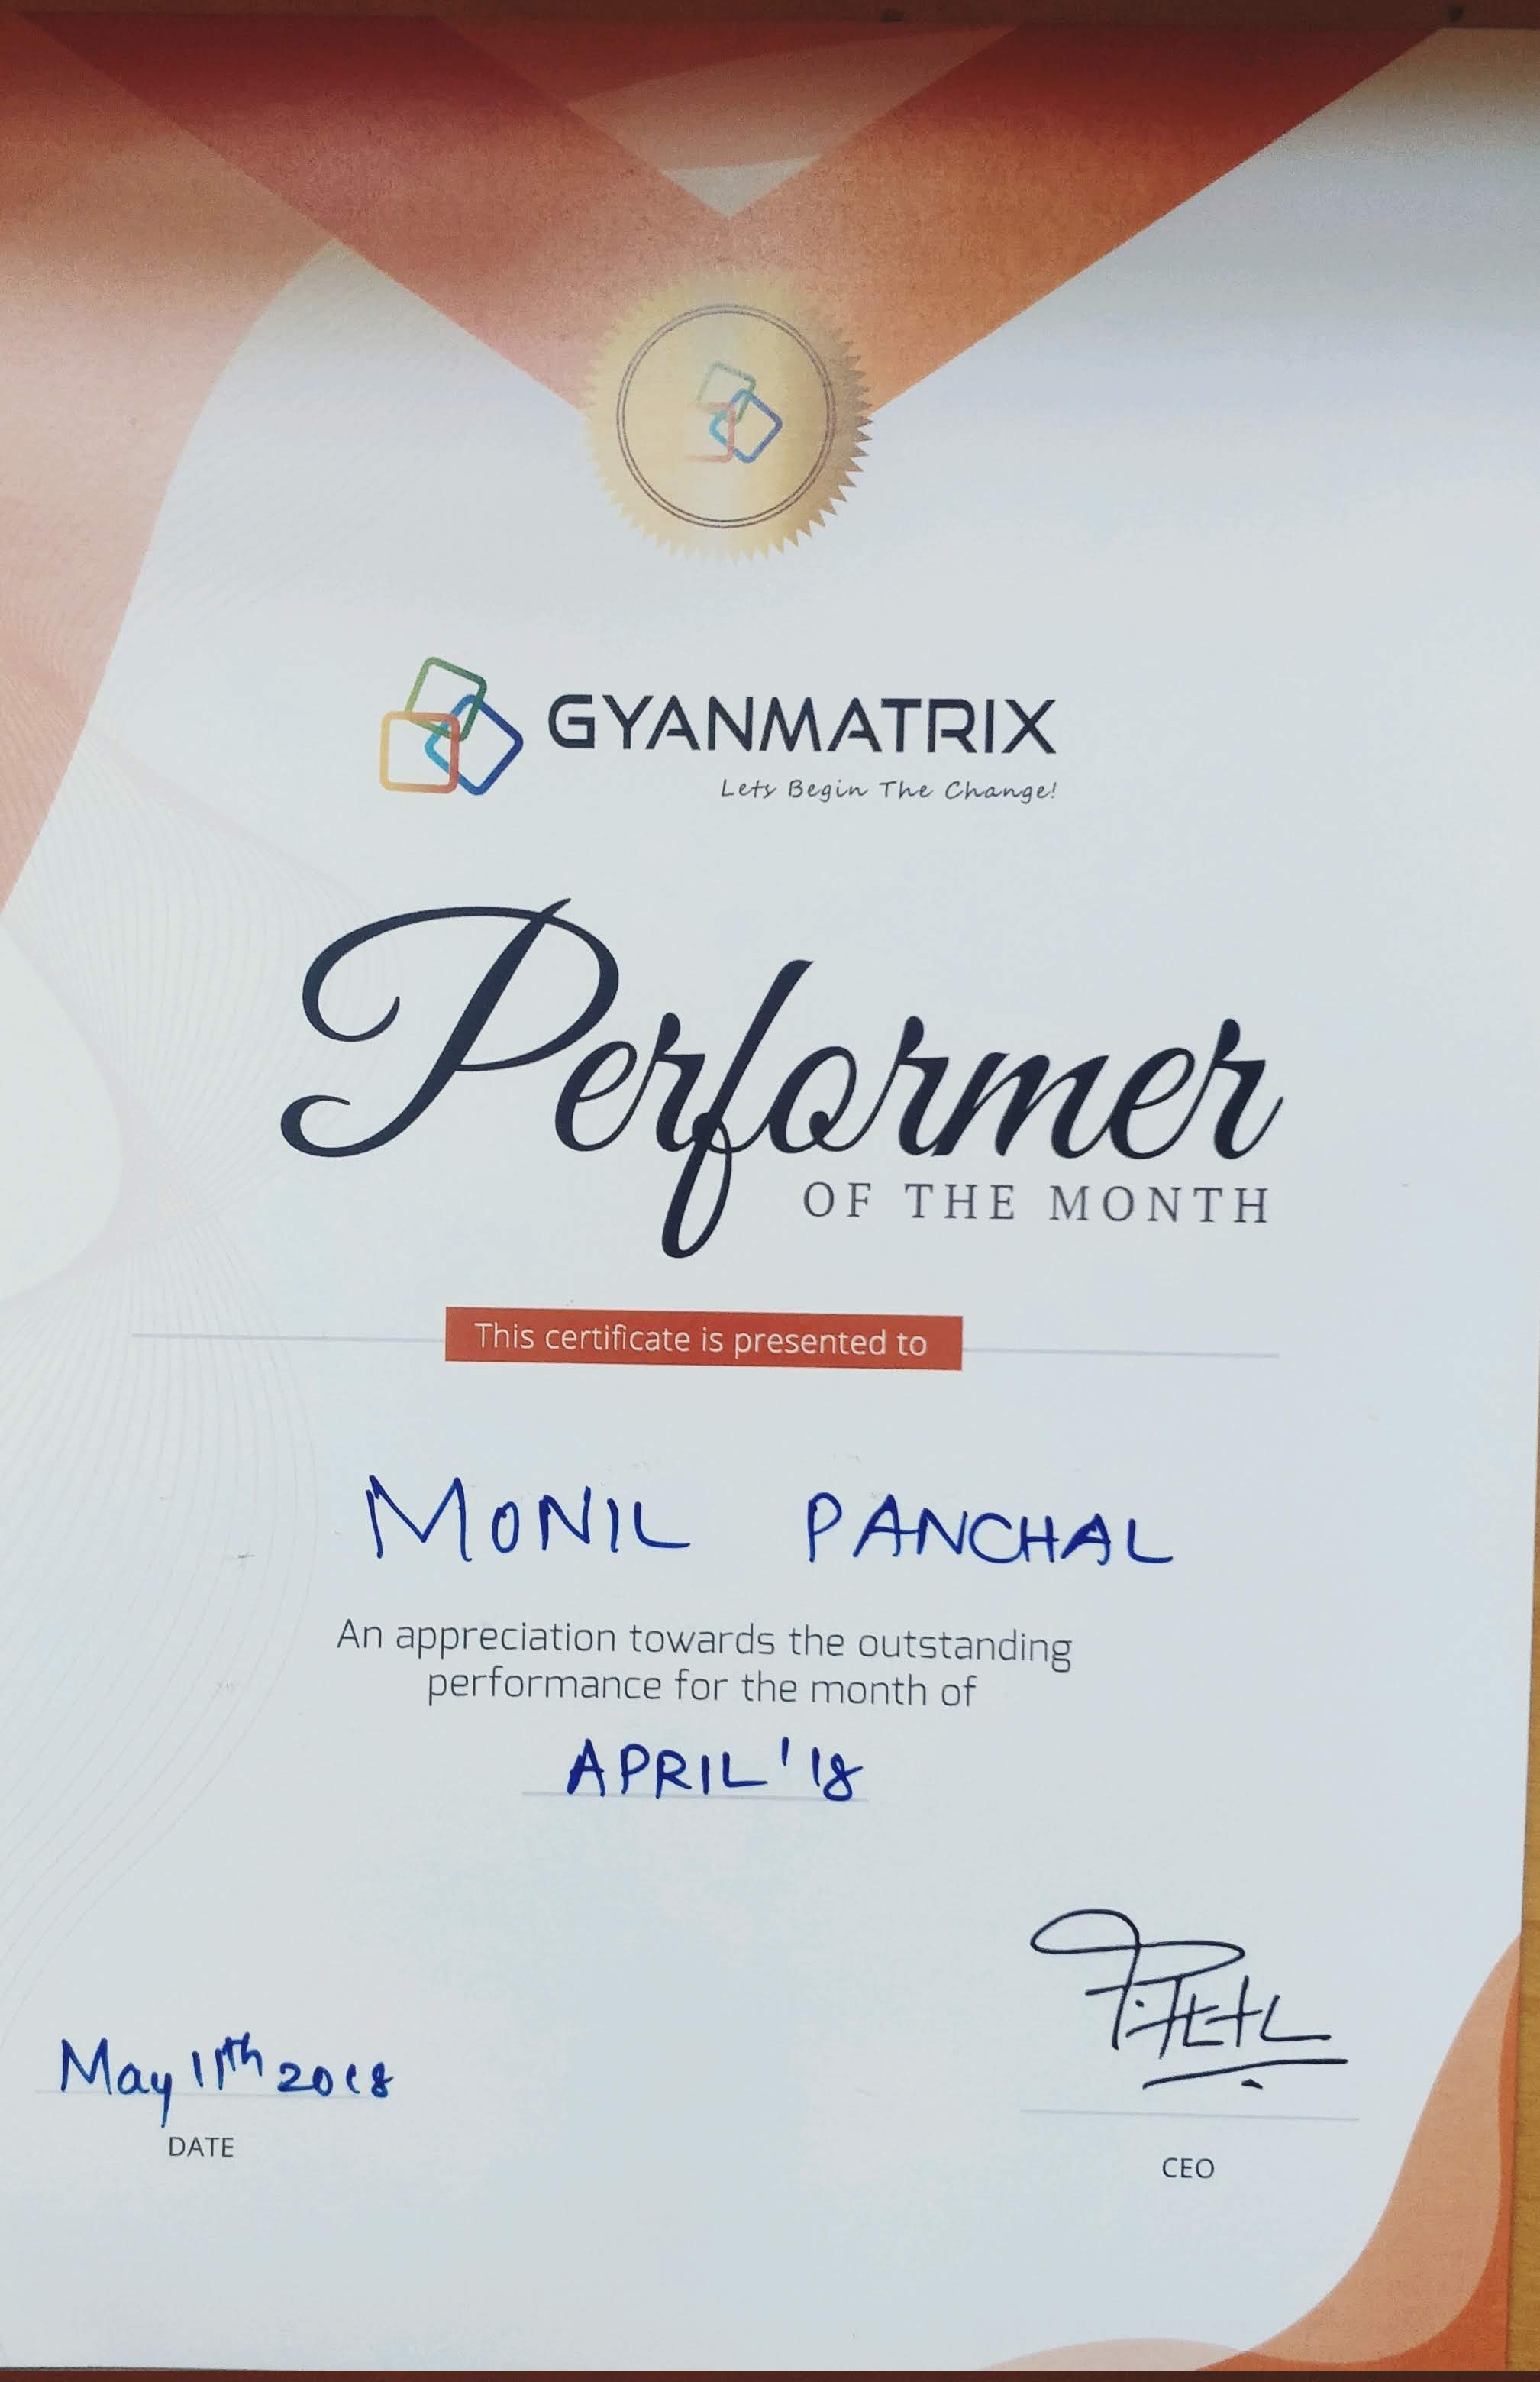 GYANMATRIX
Lets Begin The Change!
Performer
OF THE MONTH
This certificate is presented to
MONIL PANCHAL
An appreciation towards the outstanding
performance for the month of
APRIL'18
May 11th 2018
DATE
CEO